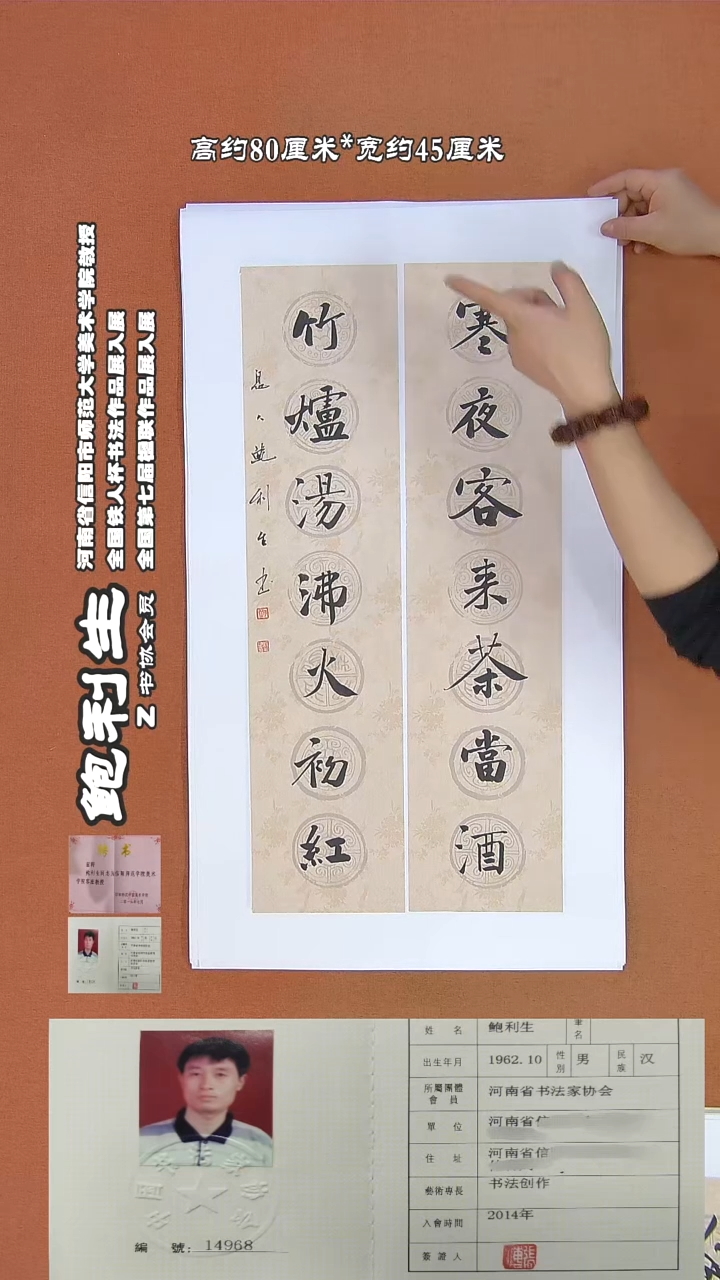 高约80厘米*宽约45厘米
河南省信阳市师范大学美术学院教授
全国铁人杯书法作品展入展
全国第七届楹联作品展入展
鲍利生
Z书协会员
寒夜客来茶當酒
竹爐湯沸火初紅
鮑利生书
聘书
姓名 鲍利生 筆名
出生年月 1962.10 性別 男 民族 汉
所屬團體會員 河南省书法家协会
單位 河南省信
住址 河南省信
藝術專長 书法创作
入會時間 2014年
簽證人
編號：14968